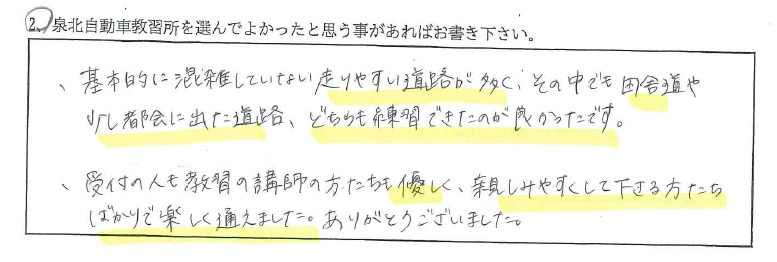 2. 泉北自動車教習所を選んでよかったと思う事があればお書き下さい。
、基本的に混雑していない走りやすい道路が多く、その中でも田舎道や
少し都会に出た道路、どちらも練習できたのが良かったです。
、受付の人も教習の講師の方たちも優しく、親しみやすくして下さる方たち
ばかりで楽しく通えました。ありがとうございました。